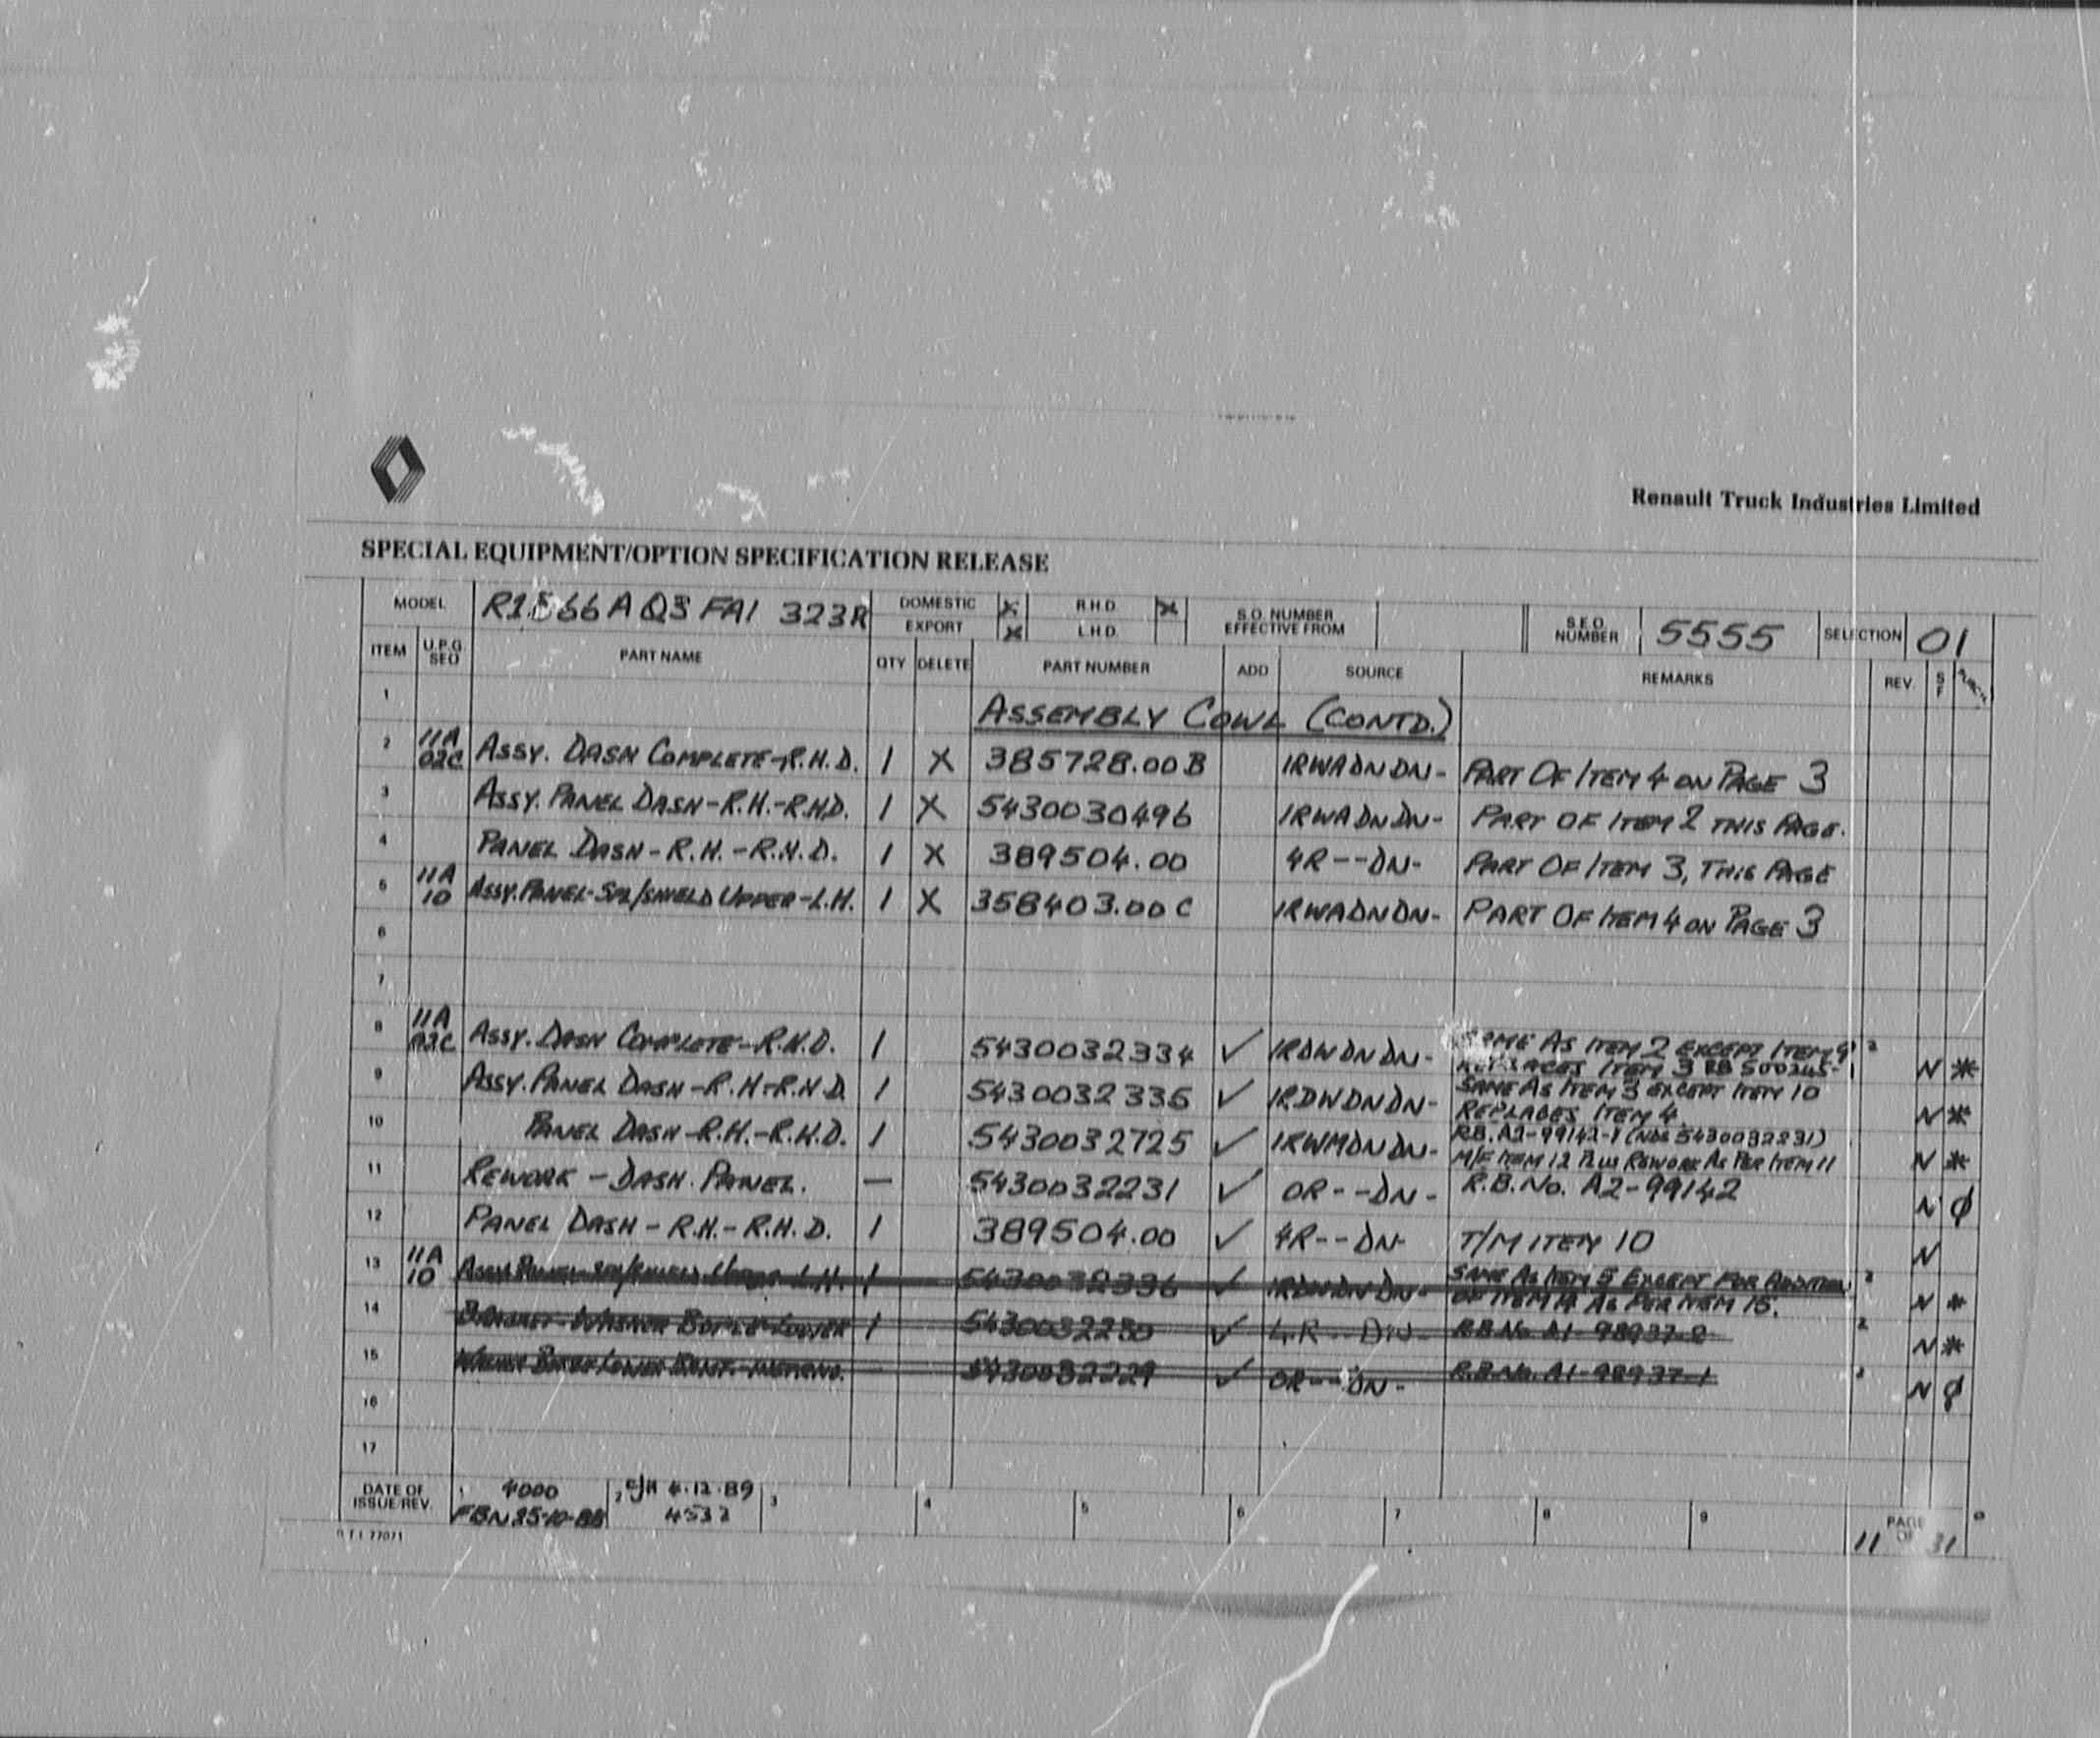 Renault Truck Industries Limited
SPECIAL EQUIPMENT/OPTION SPECIFICATION RELEASE
MODEL R1566A Q3 FA1 323R DOMESTIC X R.H.D. X S.O. NUMBER EFFECTIVE FROM S.E.O. NUMBER 5555 SELECTION 01
EXPORT X L.H.D.
ITEM U.P.G. SEQ PART NAME QTY DELETE PART NUMBER ADD SOURCE REMARKS REV. S F
1 ASSEMBLY COWL (CONTD.)
2 11A 02C ASSY. DASH COMPLETE-R.H.D. 1 X 385728.00B 1RWADNDN- PART OF ITEM 4 ON PAGE 3
3 ASSY. PANEL DASH-R.H.-R.H.D. 1 X 5430030496 1RWADNDN- PART OF ITEM 2 THIS PAGE.
4 PANEL DASH-R.H.-R.H.D. 1 X 389504.00 4R--DN- PART OF ITEM 3, THIS PAGE
5 11A 10 ASSY. PANEL-SPL/SHIELD UPPER-L.H. 1 X 358403.00C 1RWADNDN- PART OF ITEM 4 ON PAGE 3
6
7
8 11A 02C ASSY. DASH COMPLETE-R.H.D. 1 5430032334 ✓ 1RDWDNDN- SAME AS ITEM 2 EXCEPT ITEM 9 2 N *
REPLACES ITEM 3 RB
9 ASSY. PANEL DASH-R.H-R.H.D. 1 5430032335 ✓ 1RDWDNDN- SAME AS ITEM 3 EXCEPT ITEM 10 N *
REPLACES ITEM 4
10 PANEL DASH-R.H.-R.H.D. 1 5430032725 ✓ 1RWMDNDN- R.B. A2-99142-1 N *
M/F ITEM 12 PLUS REWORK AS PER ITEM 11
11 REWORK-DASH PANEL. — 5430032231 ✓ OR--DN- R.B. No. A2-99142 N Ø
12 PANEL DASH-R.H.-R.H.D. 1 389504.00 ✓ 4R--DN- T/M ITEM 10 N
13 11A 10 ASSY. PANEL-SPL/SHIELD UPPER-L.H. 1 5430032336 ✓ 1RDWDNDN- SAME AS ITEM 5 EXCEPT FOR ADDITION 2 N *
OF ITEM 14 AS PER ITEM 15.
14 BRACKET-WASHER BOTTLE-LOWER 1 5430032230 ✓ 4R--DN- R.B. No. A1-98937-2 2 N *
15 5430032229 ✓ OR--DN- R.B. No. A1-98937-1 N Ø
16
17
DATE OF ISSUE/REV. 1 4000 2 4.12.89 3 4 5 6 7 8 9 PAGE 11 OF 31
FBN 25-10-88 4532
R T I 77071